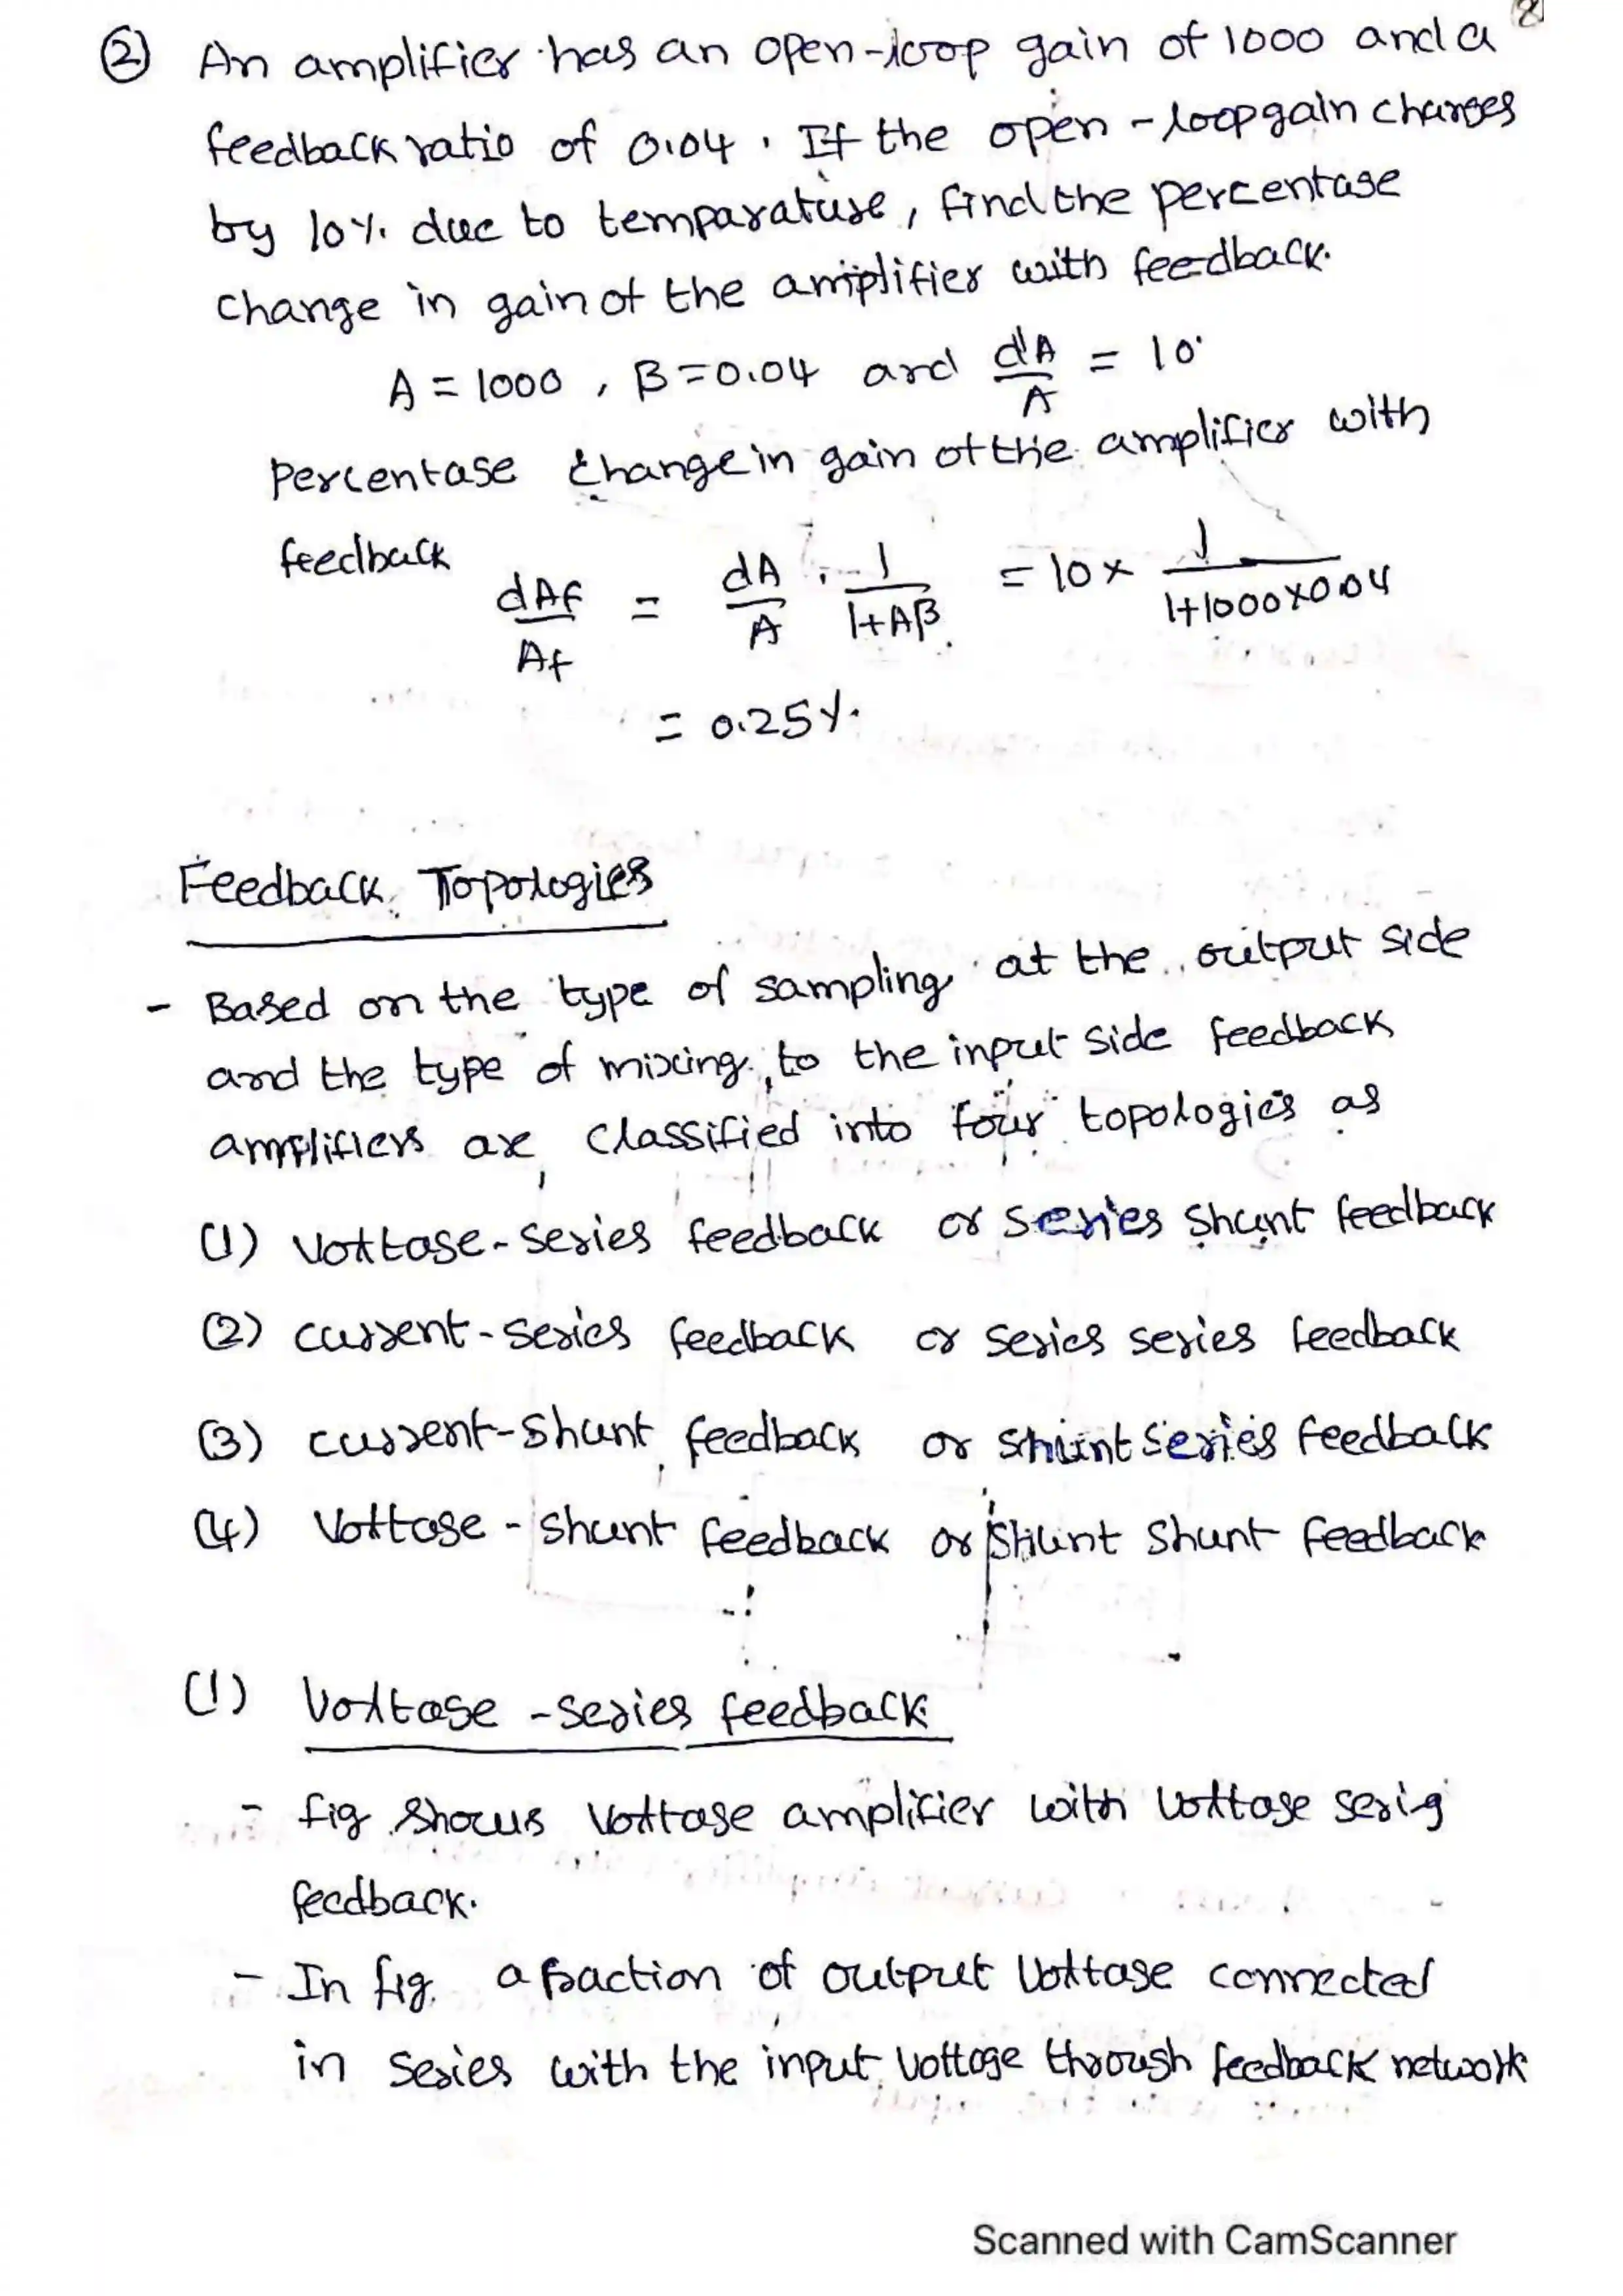 8
② An amplifier has an open-loop gain of 1000 and a
feedback ratio of 0.04. If the open-loop gain changes
by 10% due to temparature, find the percentage
change in gain of the amplifier with feedback.
A = 1000, β = 0.04 and dA/A = 10
Percentage change in gain of the amplifier with
feedback dAf/Af = dA/A · 1/(1+Aβ) = 10 × 1/(1+1000×0.04)
= 0.25%
Feedback Topologies
- Based on the type of sampling at the output side
and the type of mixing to the input side feedback
amplifiers are classified into four topologies as
(1) Voltage-series feedback or series shunt feedback
(2) current-series feedback or series series feedback
(3) current-shunt feedback or shunt series feedback
(4) Voltage-shunt feedback or shunt shunt feedback
(1) Voltage-series feedback
- fig shows voltage amplifier with voltage series
feedback.
- In fig. a fraction of output voltage connected
in series with the input voltage through feedback network
Scanned with CamScanner